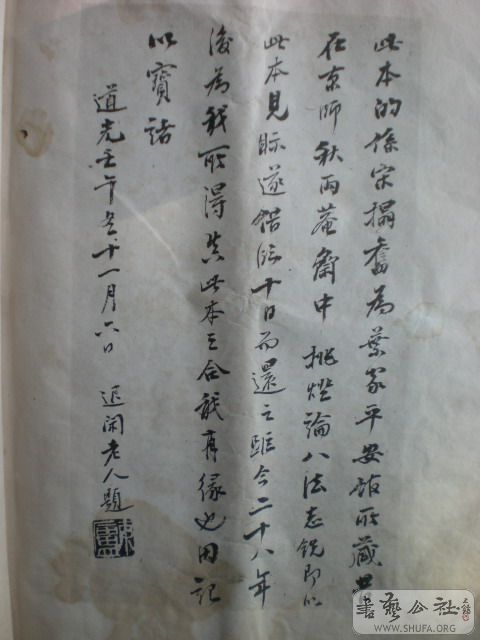 此本的係宋搨舊為葉家平安館所藏曩
在京師秋雨菴齋中挑燈論八法志銳即以
此本見眎遂借臨十日而還之距今二十八年
後為我所得其此本之合誠有緣也因記
以寶諸
道光壬午年十一月六日 退閑老人題
書藝公社
WWW.SHUFA.ORG